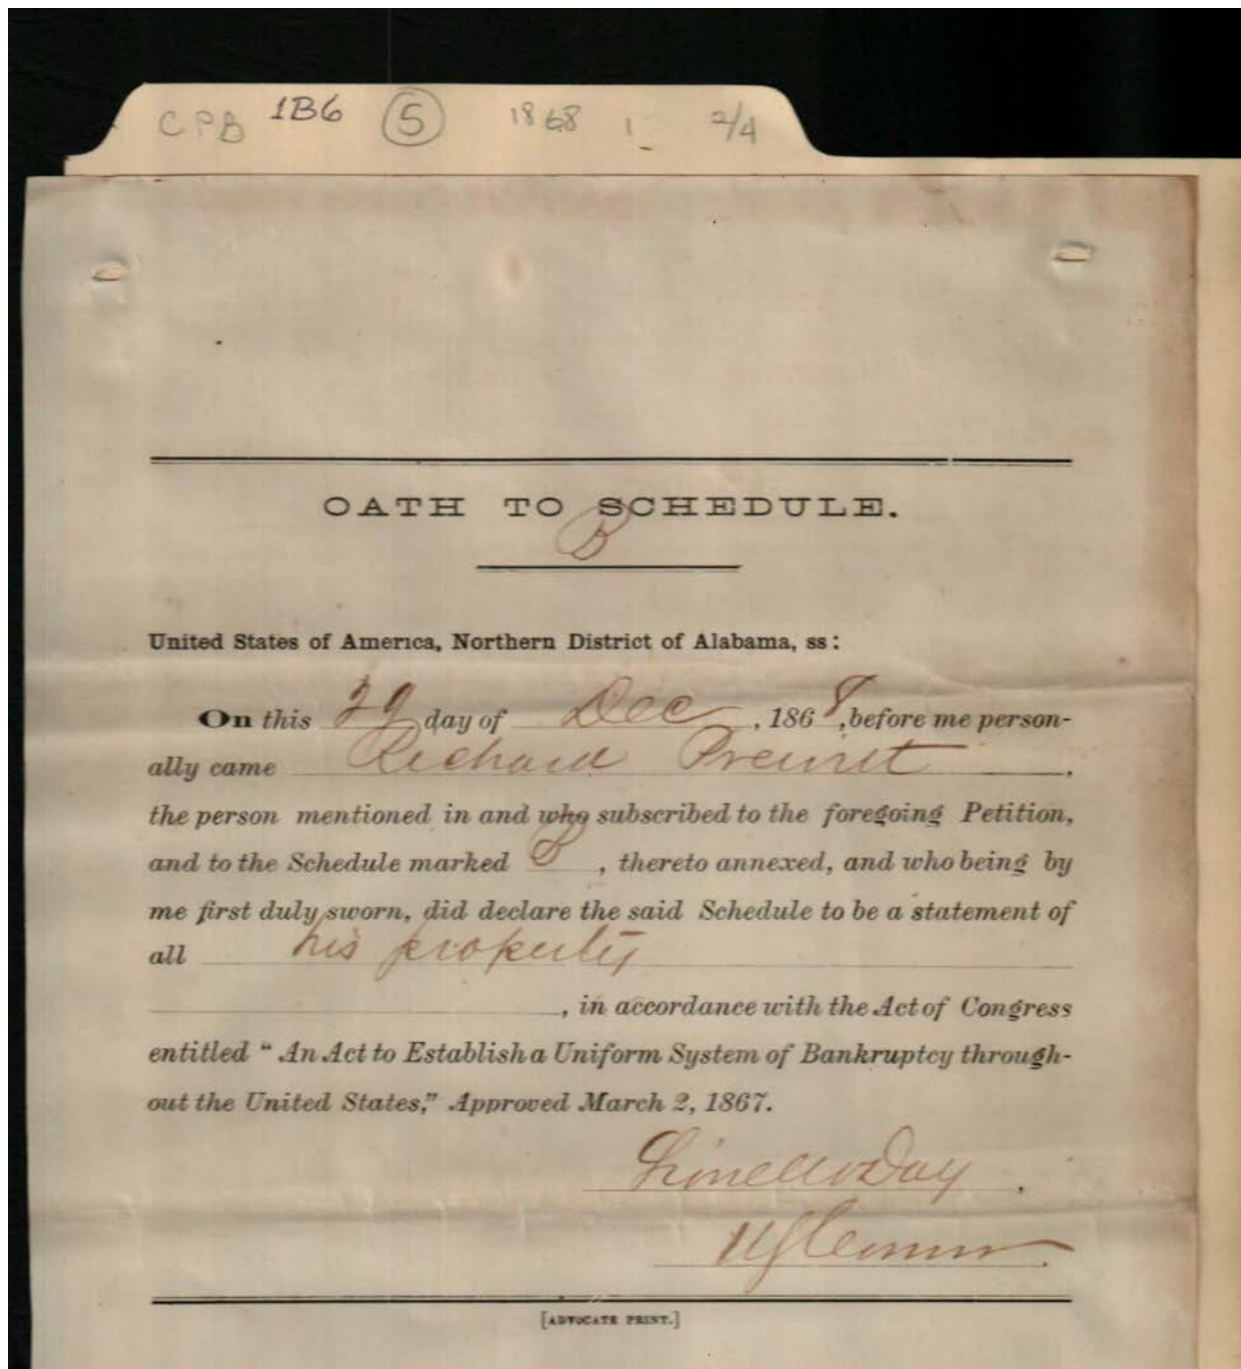 CPB 1B6 5 1868 1 2/4
OATH TO SCHEDULE.
B
United States of America, Northern District of Alabama, ss:
On this 29 day of Dec, 1868, before me person-
ally came Richard Prewit,
the person mentioned in and who subscribed to the foregoing Petition,
and to the Schedule marked B, thereto annexed, and who being by
me first duly sworn, did declare the said Schedule to be a statement of
all his property
, in accordance with the Act of Congress
entitled "An Act to Establish a Uniform System of Bankruptcy through-
out the United States," Approved March 2, 1867.
Day.
[ADVOCATE PRINT.]